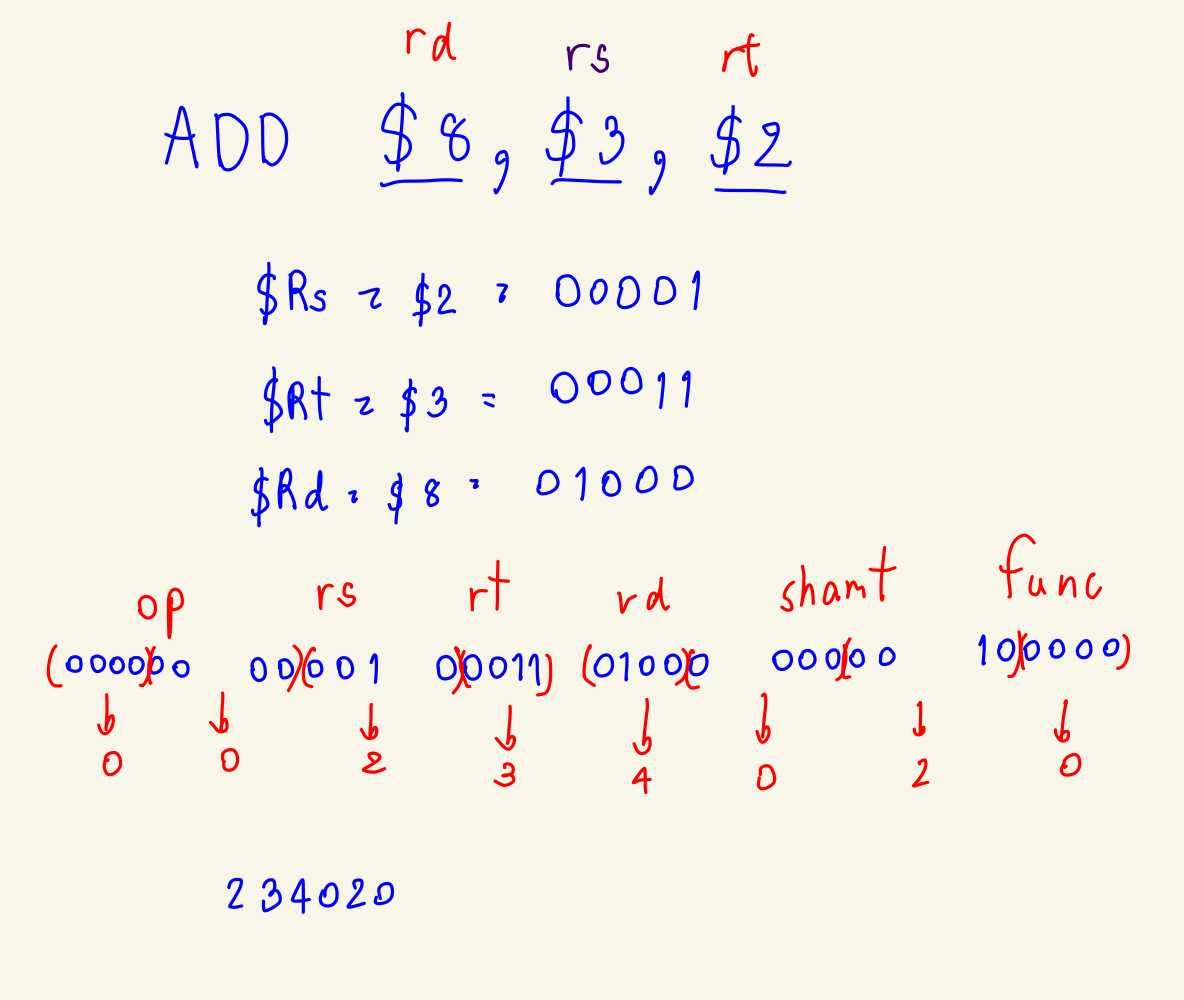 rd rs rt
ADD $8, $3, $2
$Rs = $2 = 00001
$Rt = $3 = 00011
$Rd = $8 = 01000
op rs rt rd shamt func
(0000)(00 00)(001 0)(0011) (0100)(0 000)(00 10)(0000)
0 0 2 3 4 0 2 0
234020